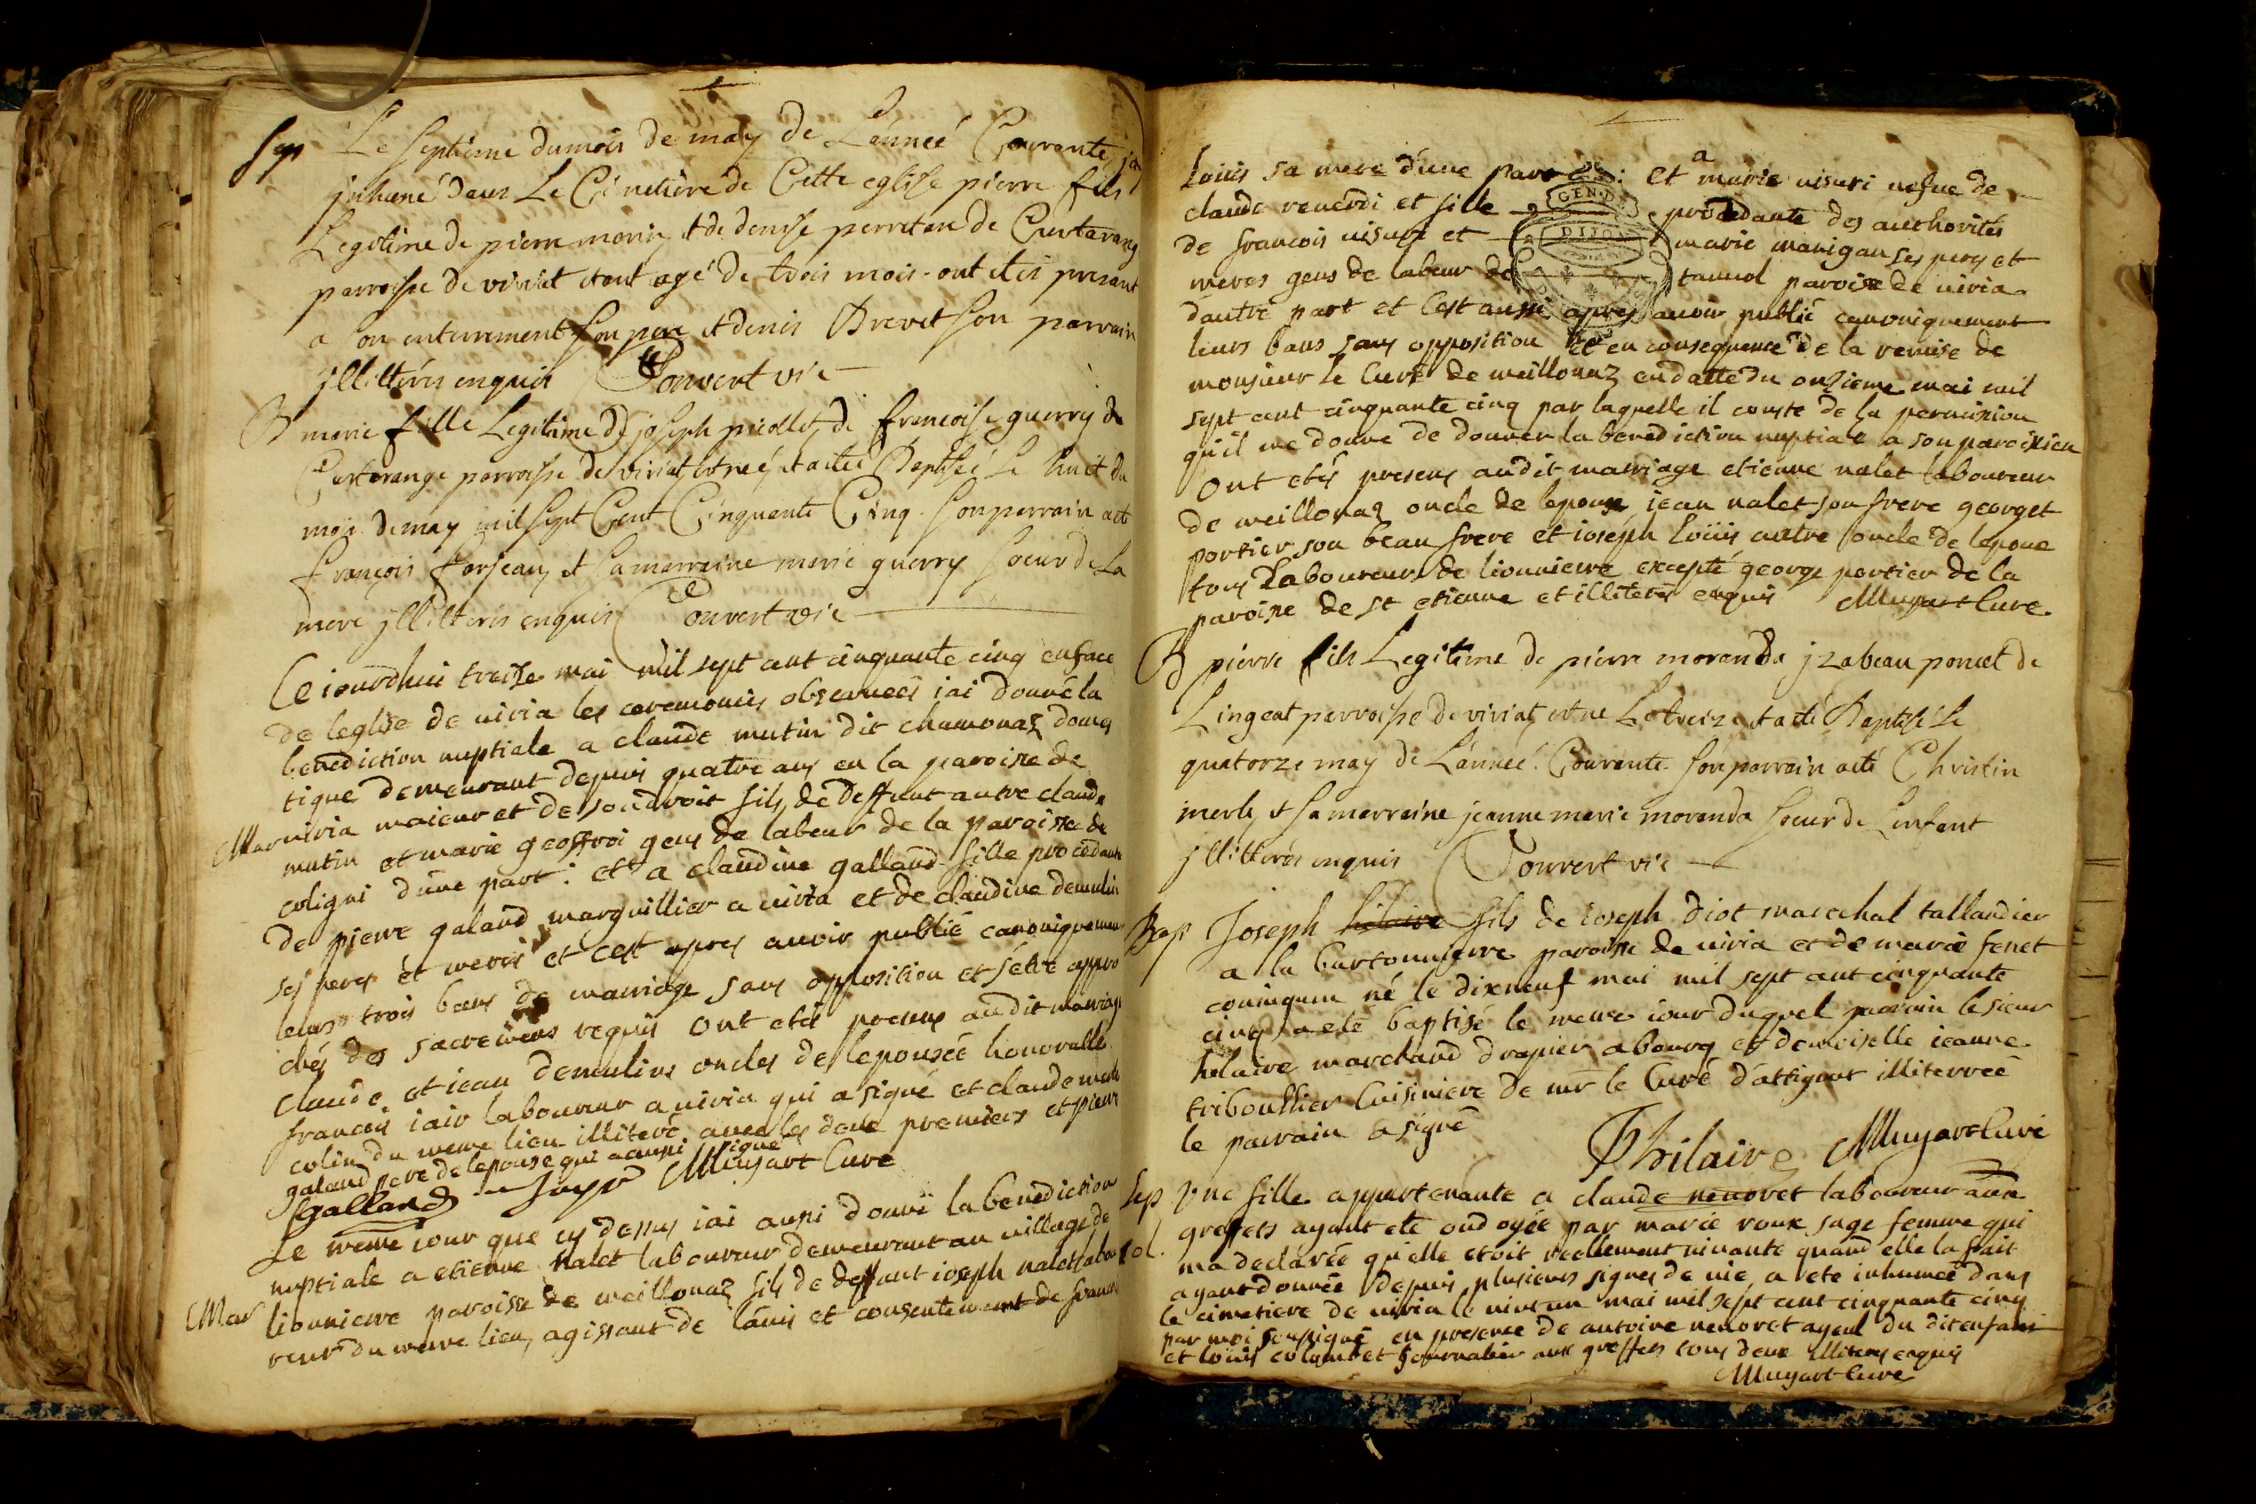 Sep Le septieme du mois de may de L'année Courante j'ay
jnhumé dans Le Cimetière de Cette eglisse pierre fils
Legitime de pierre morin et de denise perretan de Curtarang
parroisse de viriat etant agé de trois mois ont étés presant
a son enterrement son pere et denis Brevet son parrain
jllitterés enquis Convert vic
B marie fille Legitime de joseph piollet de francoise guerry de
Curtarange parroisse de viriat est neé et a eteé Baptiseé Le huit du
mois de may mil sept Cent Cinquente Cinq. son parrain a eté
françois forjean et sa marraine marie guerry soeur de La
mere jllitteris enquis Convert vic
Ce iourdhui treise mai mil sept cent cinquante cinq en face
de leglise de viria les ceremonies observeés iai donné la
benediction nuptiale a claude mutin dit chamonaz domes
tique demeurant depuis quatre ans en la paroisse de
Mar viria maieur et de son droit fils de deffunt autre claude
mutin et marie geoffroi gens de labeur de la paroisse de
coligni d'une part: et a claudine galland fille procedante
de pierre galand marguillier a viria et de claudine demulin
ses peres et meres et c'est apres avoir publié canoniquement
leurs trois bans de mariage sans opposition et s'etre appro
chés des sacremens requis ont etés presens audit mariage
claude et iean demulins oncles de lepouseé honorable
francois iair laboureur a viria qui a signé et claude
colin du meme lieu illiteré avec les deux premiers et pierre
galand pere de lepouse qui a aussi signé
Sgalland Jayr Muyart Curé
Le meme iour que cy dessus iai aussi donné la benediction
nuptiale a etienne nalet laboureur demeurant au village de
Mar lionniere paroisse de meillonaz fils de deffunt ioseph nalet labou
reur du meme lieu, agissant de lavis et consentement de
Loüis sa mere d'une part: et a marie visuri vefve de
claude reverdi et fille procedante des authorités
de francois visuri et marie manigan ses peres et
meres gens de labeur de tannol paroisse de viria
d'autre part et c'est aussi apres avoir publié canoniquement
leurs bans sans opposition et en consequence de la remise de
monsieur le Curé de meillonaz en datte du onzieme mai mil
sept cent cinquante cinq par laquelle il conste de la permission
qu'il me donne de donner la benediction nuptiale a son paroissien
Ont etés presens audit mariage etienne nalet laboureur
de meillonaz oncle de lepoux iean nalet son frere georget
portier son beau frere et ioseph loüis autre oncle de lepoux
tous Laboureurs de lionniere excepté george portier de la
paroisse de st etienne et illiterés enquis Muyart Curé
B pierre fils Legitime de pierre moranda jzabeau poncet de
Lingeat parroisse de viriat est ne Le treize et a eté Baptisé Le
quatorze may de L'année Courante. son parrain a eté Christin
merle et sa marraine jeanne marie moranda soeur de L'enfant
jllitterés enquis Convert vic
Bap Joseph hilaire fils de ioseph diot marechal tallandier
a la Cartonniere paroisse de viria et de marie fenet
coniugum né le dixneuf mai mil sept cent cinquante
cinq a eté baptisé le meme iour duquel parrain le sieur
hilaire marchand drapier a bourg et demoiselle ieanne
triboullier Cuisiniere de mr le Curé d'attignat illiterreé
le parrain a signé
Philaire Muyart Curé
Sep Une fille appartenante a claude nevoret laboureur aux
sol. greffets ayant eté ondoyée par marie roux sage femme qui
ma declarée qu'elle etoit reellement vivante quand elle la fait
ayant donnée depuis plusieurs signes de vie, a eté inhumeé dans
le cimetiere de viria le vint un mai mil sept cent cinquante cinq
par moi soussigné en presence de antoine nevoret ayeul du dit enfant
et loüis colombet journalier aux greffets tous deux illiterés enquis
Muyart Curé
GEN. D
DIJON